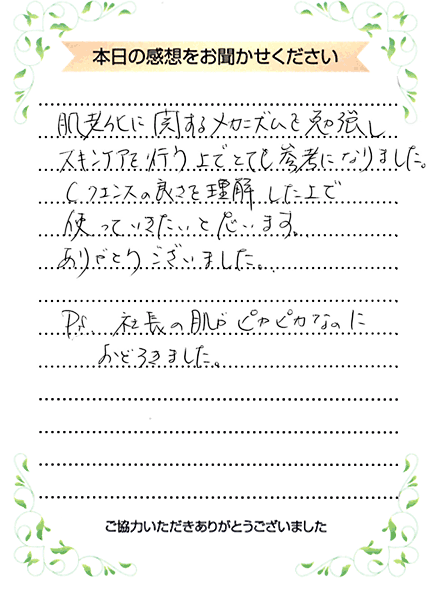 本日の感想をお聞かせください
肌老化に関するメカニズムを勉強し
スキンケアを行う上でとても参考になりました。
Cクエンスの良さを理解した上で
使っていきたいと思います。
ありがとうございました。
P.S. 社長の肌がピカピカなのに
おどろきました。
ご協力いただきありがとうございました